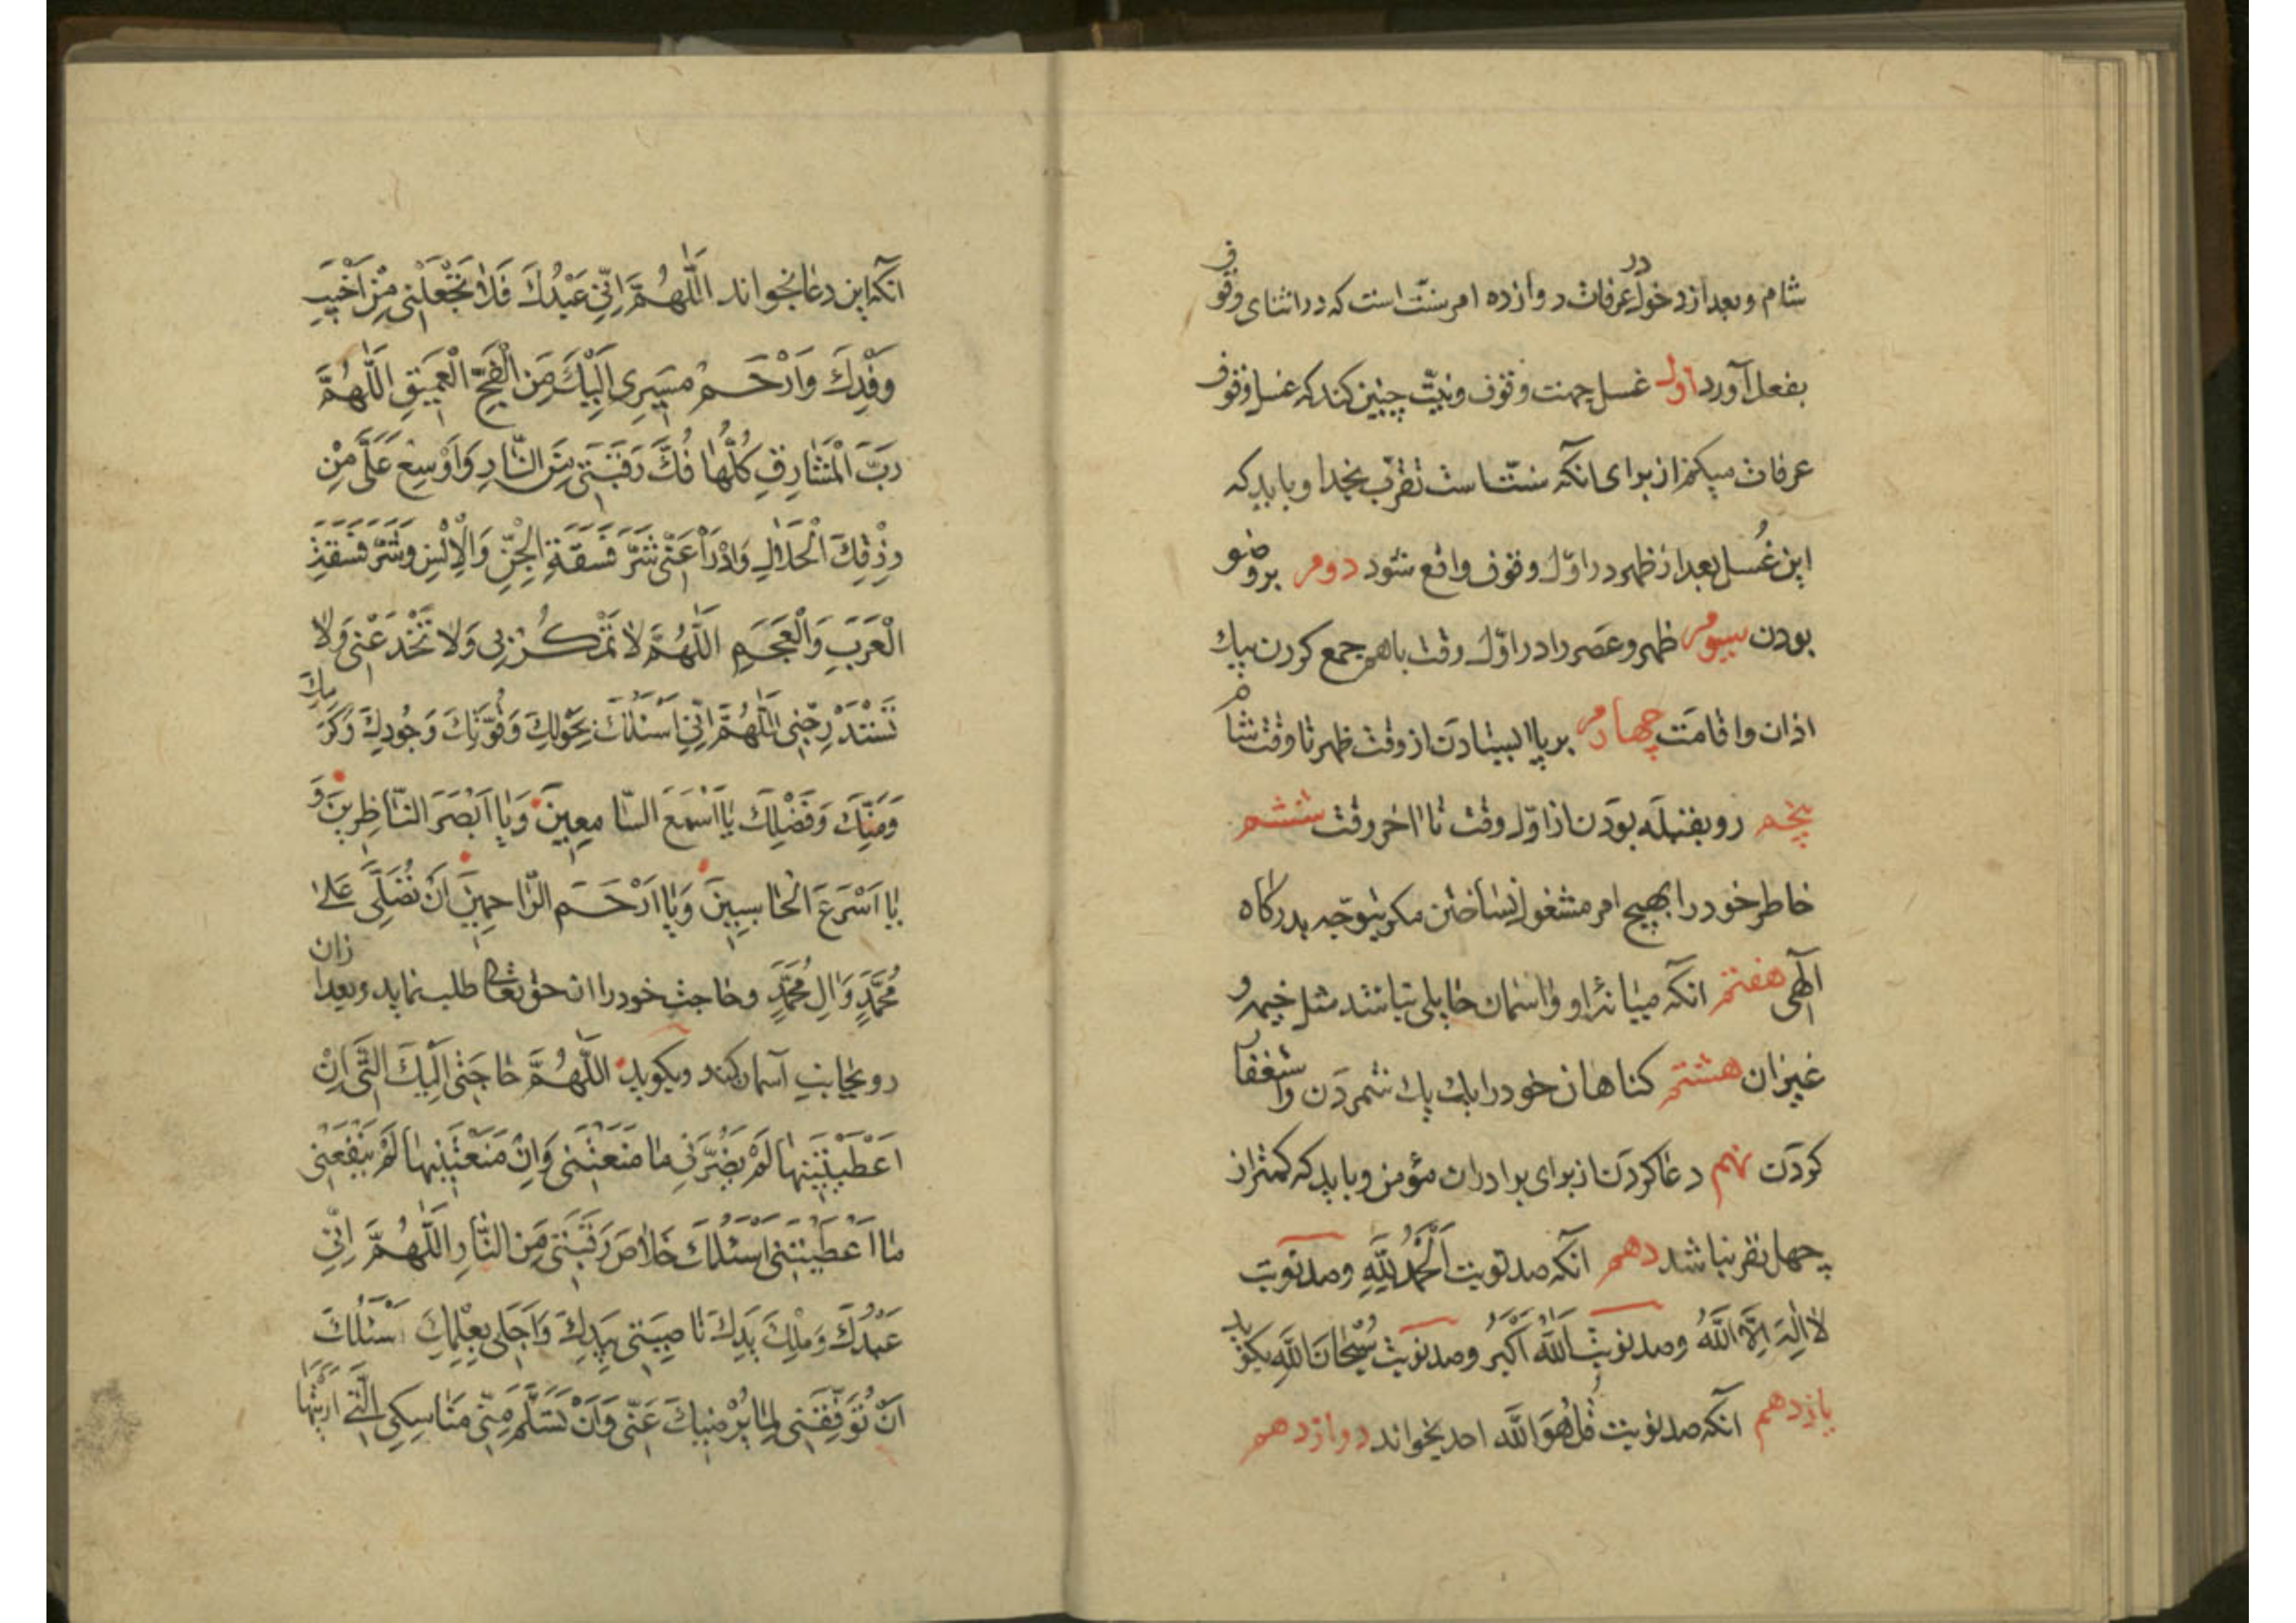 شام و بعد از دخول در عرفات دوازده امر سنّت است که در اثنای وقوف
بفعل آورد اول غسل جهت وقوف و نیّت چنین کند که غسل وقوف
عرفات میکنم از برای انکه سنّت است تقرّب بخدا و باید که
این غُسل بعد از ظهر در اوّل وقوف واقع شود دوم بر وضو
بودن سیوم ظهر و عصر را در اوّل وقت باهم جمع کردن بیک
اذان و اقامَت چهارم بر پا ایستادن از وقت ظهر تا وقت شام
پنجم رو بقبله بودَن از اوّل وقت تا اخر وقت ششم
خاطر خود را بهیچ امر مشغول نساختن مکر بتوجّه بدرکاه
آلهی هفتم انکه میانۀ او و اسمان حایلی نباشد مثل خیمه و
غیر ان هشتم کناهان خود را یک یک شمردَن و استغفار
کردَن نهم دعا کردَن از برای برادران مؤمن و باید که کمتر از
چهل نفر نباشد دهم انکه صد نوبت اَلْحَمْدُ لِلّهِ و صد نوبت
لا اِلٰهَ اِلاَّ اللّهُ و صد نوبت اَللّهُ اَکْبَرُ و صد نوبت سُبْحانَ اللّهِ بکوید
یازدهم انکه صد نوبت قُلْ هُوَ اللّه احد بخواند دوازدهم
انکه این دعا بخواند اَللّهُمَّ اِنّی عَبْدُكَ فَلا تَجْعَلْنی مِنْ اَخْیَبِ
وَفْدِكَ وَارْحَمْ مَسیری اِلَیْكَ مِنَ الْفَجِّ الْعَمیقِ اَللّهُمَّ
رَبَّ الْمَشٰارِقِ کُلِّهٰا فُكَّ رَقَبَتی مِنَ النّارِ وَ اَوْسِعْ عَلَیَّ مِنْ
رِزْقِكَ الْحَلالِ وَادْرَأْ عَنّی شَرَّ فَسَقَةِ الْجِنِّ وَالْاِنْسِ وَشَرَّ فَسَقَةِ
الْعَرَبِ وَالْعَجَمِ اَللّهُمَّ لا تَمْکُرْ بی وَلا تَخْدَعْنی وَلا
تَسْتَدْرِجْنی اَللّهُمَّ اِنّی اَسْئَلُكَ بِحَوْلِكَ وَقُوَّتِكَ وَجُودِكَ وَکَرَمِكَ
وَمَنِّكَ وَفَضْلِكَ یٰا اَسْمَعَ السّامِعینَ وَیٰا اَبْصَرَ النّاظِرینَ وَ
یٰا اَسْرَعَ الْحٰاسِبینَ وَیٰا اَرْحَمَ الرّاحِمینَ اَنْ تُصَلِّیَ عَلیٰ
مُحَمَّدٍ وَ الِ مُحَمَّدٍ و حاجت خود را از حق تعالی طلب نماید و بعد از ان
رو بجانب آسمان کند و بکوید اَللّهُمَّ حٰاجَتی اِلَیْكَ الَّتی اِنْ
اَعْطَیْتَنیهٰا لَمْ یَضُرَّنی مٰا مَنَعْتَنی وَاِنْ مَنَعْتَنیهٰا لَمْ یَنْفَعْنی
مٰا اَعْطَیْتَنی اَسْئَلُكَ خَلاٰصَ رَقَبَتی مِنَ النّارِ اَللّهُمَّ اِنّی
عَبْدُكَ وَمِلْكُ یَدِكَ نٰاصِیَتی بِیَدِكَ وَاَجَلی بِعِلْمِكَ اَسْئَلُكَ
اَنْ تُوَفِّقَنی لِمٰا یُرْضیكَ عَنّی وَاَنْ تُسَلِّمَ مِنّی مَنٰاسِکِی الَّتی اَرَیْتَهٰا